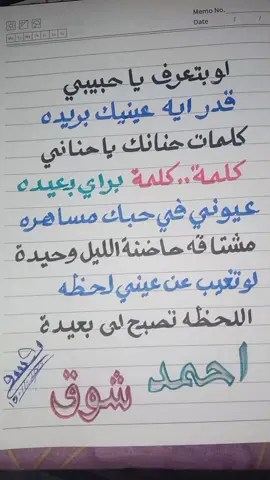 Memo No.
Date / /
لو بتعرف يا حبيبي
قدر ايه عينيك بريده
كلمات حنانك يا حناني
كلمة..كلمة براي بعيده
عيوني في حبك مساهره
مشتاقه حاضنة الليل وحيدة
لو تغيب عن عيني لحظه
اللحظه تصبح لى بعيدة
احمد
شوق